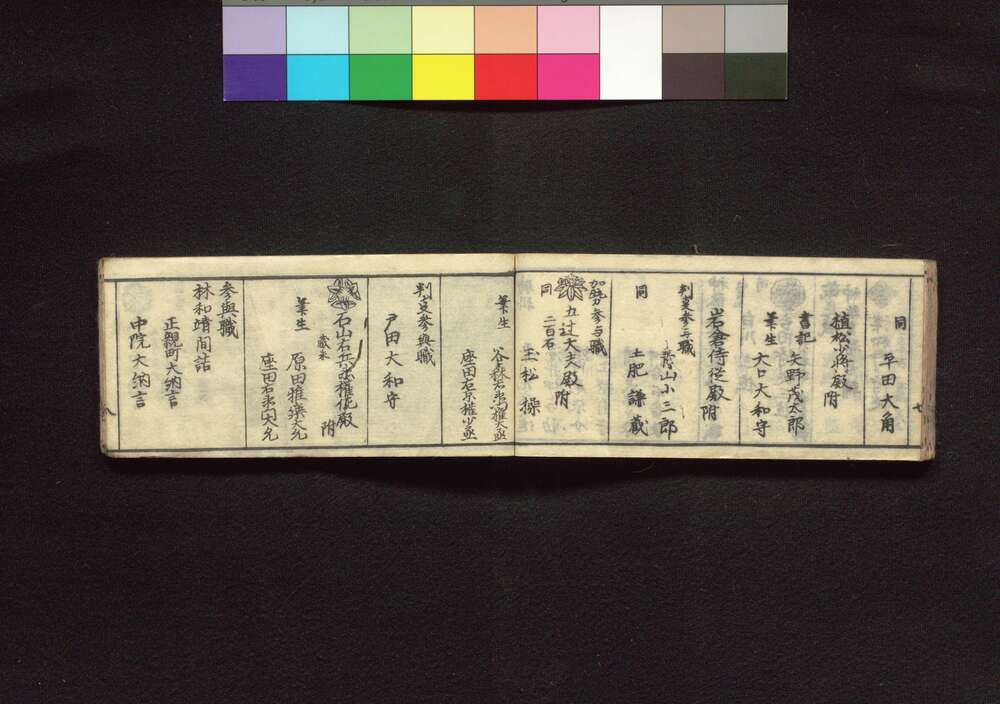 七
同
平田大角
植松少将殿附
書記
矢野茂太郎
筆生
大口大和守
岩倉侍従殿附
判事参与職
青山小三郎
同
土肥謙蔵
加勢参与職
五辻大夫殿附
同
二百石
玉松操
筆生
谷森右兵衛権大丞
座田右京権少丞
判事参與職
戸田大和守
石山右兵衛権佐殿附
蔵米
筆生
原田雅樂大允
座田右兵衛大允
参與職
林和靖間詰
正親町大納言
中院大納言
八